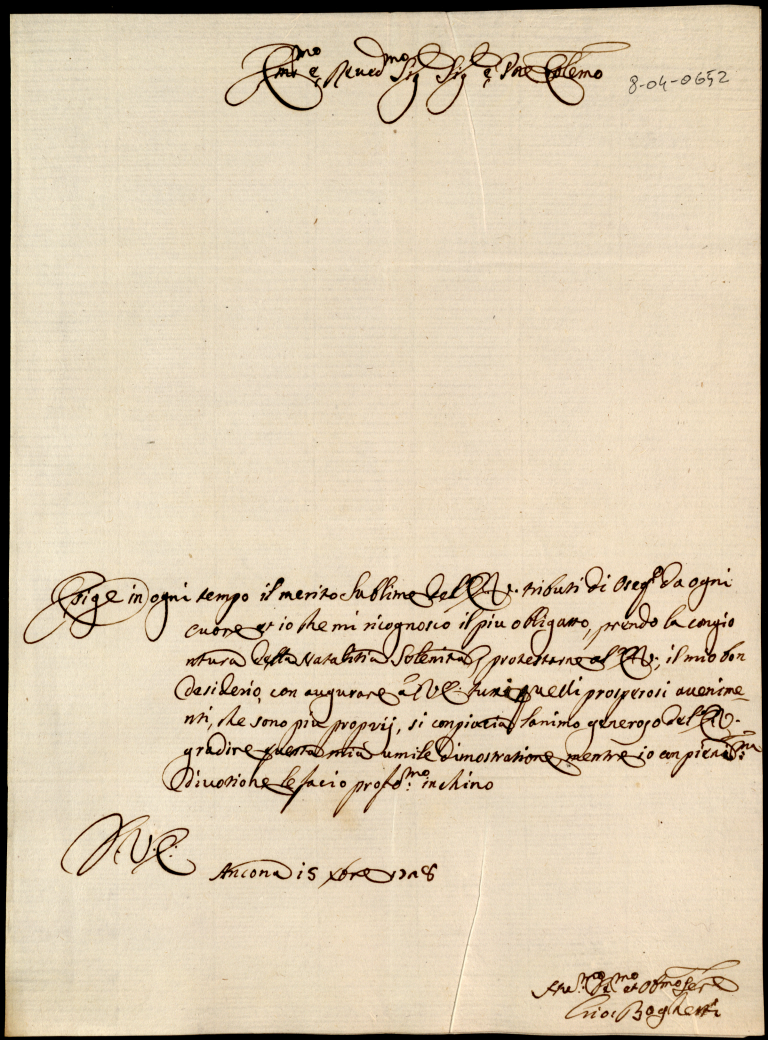 Em.mo e Reued.mo Sig Sig e Pne Colemo
8-04-0652
Esige in ogni tempo il merito Sublime dell E. V. tributi di Oseq.o da ogni
cuore et io che mi ricognosco il piu obligatto, prendo la congio
ntura della Natalitia Solenita p protestarne al E.V., il mio bon
desiderio, con augurare a V.E. tutti quelli prosperosi auenime
nti, che sono piu proprij, si conpiacia l'animo generoso del E.V.
gradire questa mia umile dimostratione, mentre io con pienis.ma
diuotione le facio profo.mo inchino
D. V. E.
Ancona 15 Xbre
et Obmo Ser
Boghetti